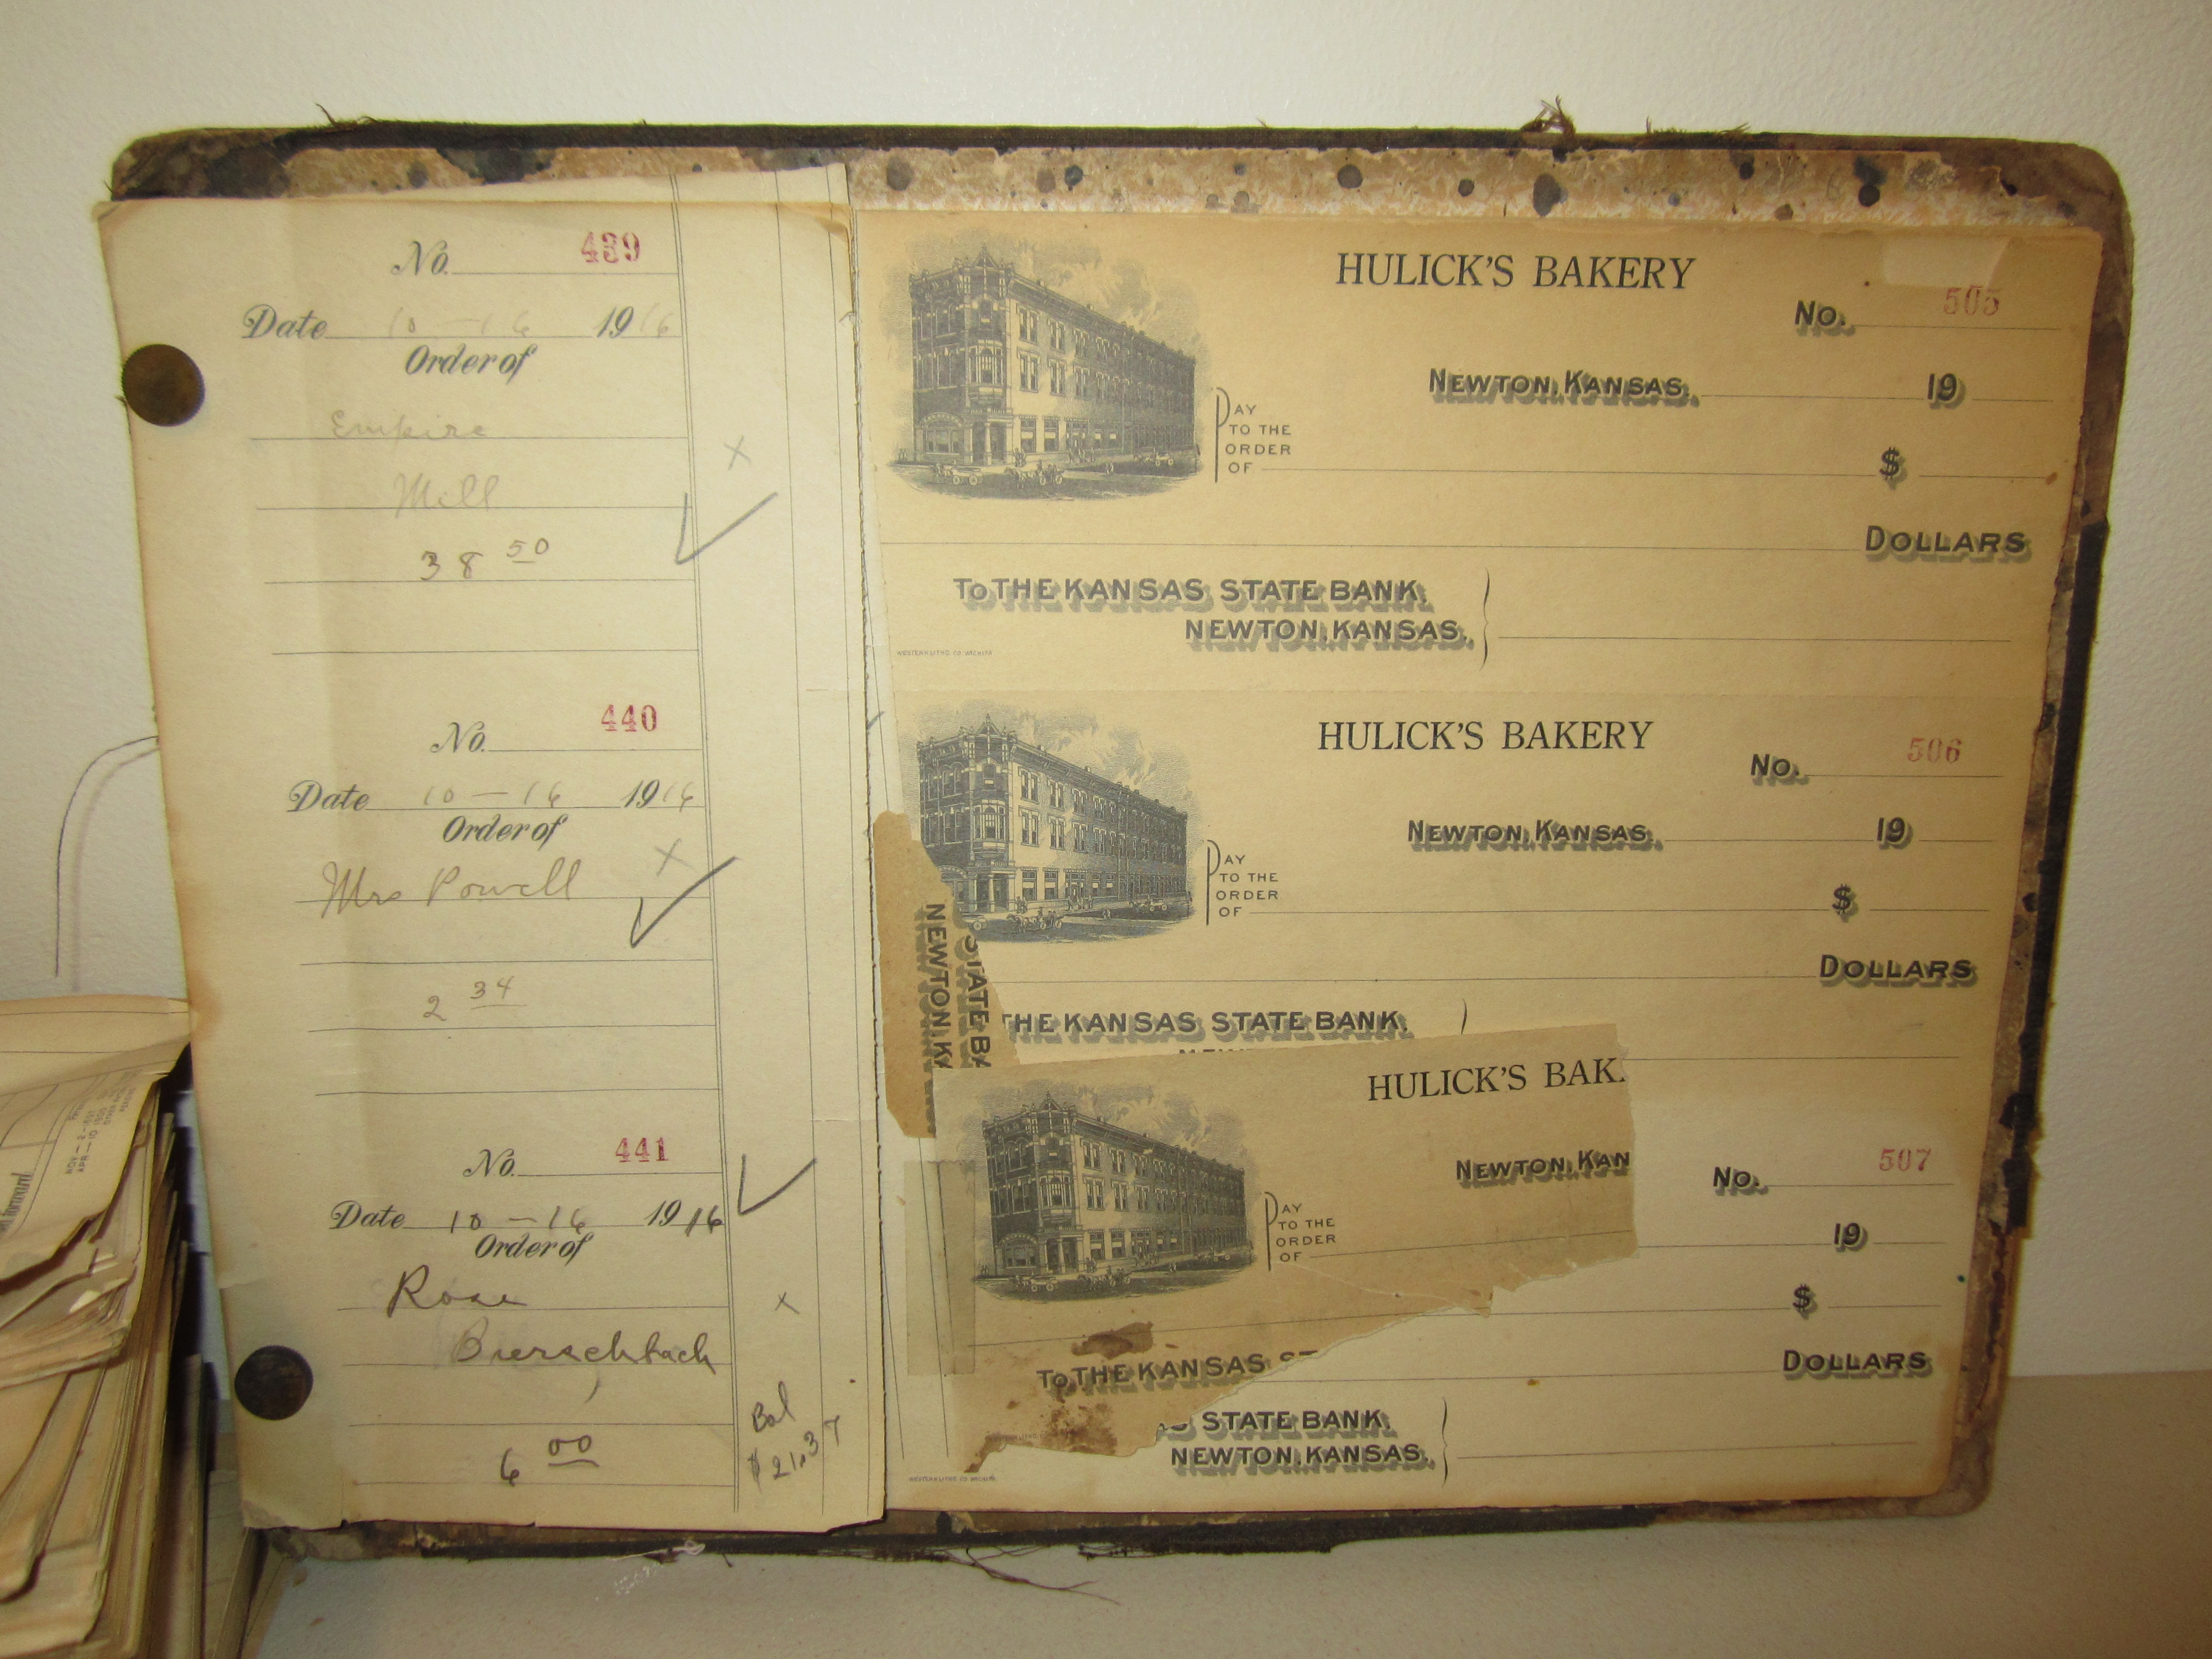 No. 439
Date 10 - 16 1916
Order of
Empire
Mill
38 50
No. 440
Date 10 - 16 1916
Order of
Mrs Powell
2 34
No. 441
Date 10 - 16 1916
Order of
Rose
Bierschbach
6 00
Bal
$21.37
HULICK'S BAKERY
No. 505
NEWTON, KANSAS, 19
PAY
TO THE
ORDER
OF $
DOLLARS
TO THE KANSAS STATE BANK,
NEWTON, KANSAS.
WESTERN LITHO. CO. WICHITA
HULICK'S BAKERY
No. 506
NEWTON, KANSAS, 19
PAY
TO THE
ORDER
OF $
DOLLARS
THE KANSAS STATE BANK,
STATE BA
NEWTON, KA
HULICK'S BAK
NEWTON, KAN
No. 507
19
PAY
TO THE
ORDER
OF
$
DOLLARS
TO THE KANSAS ST
STATE BANK,
NEWTON, KANSAS.
NOV - 2 - 601
APR - 10